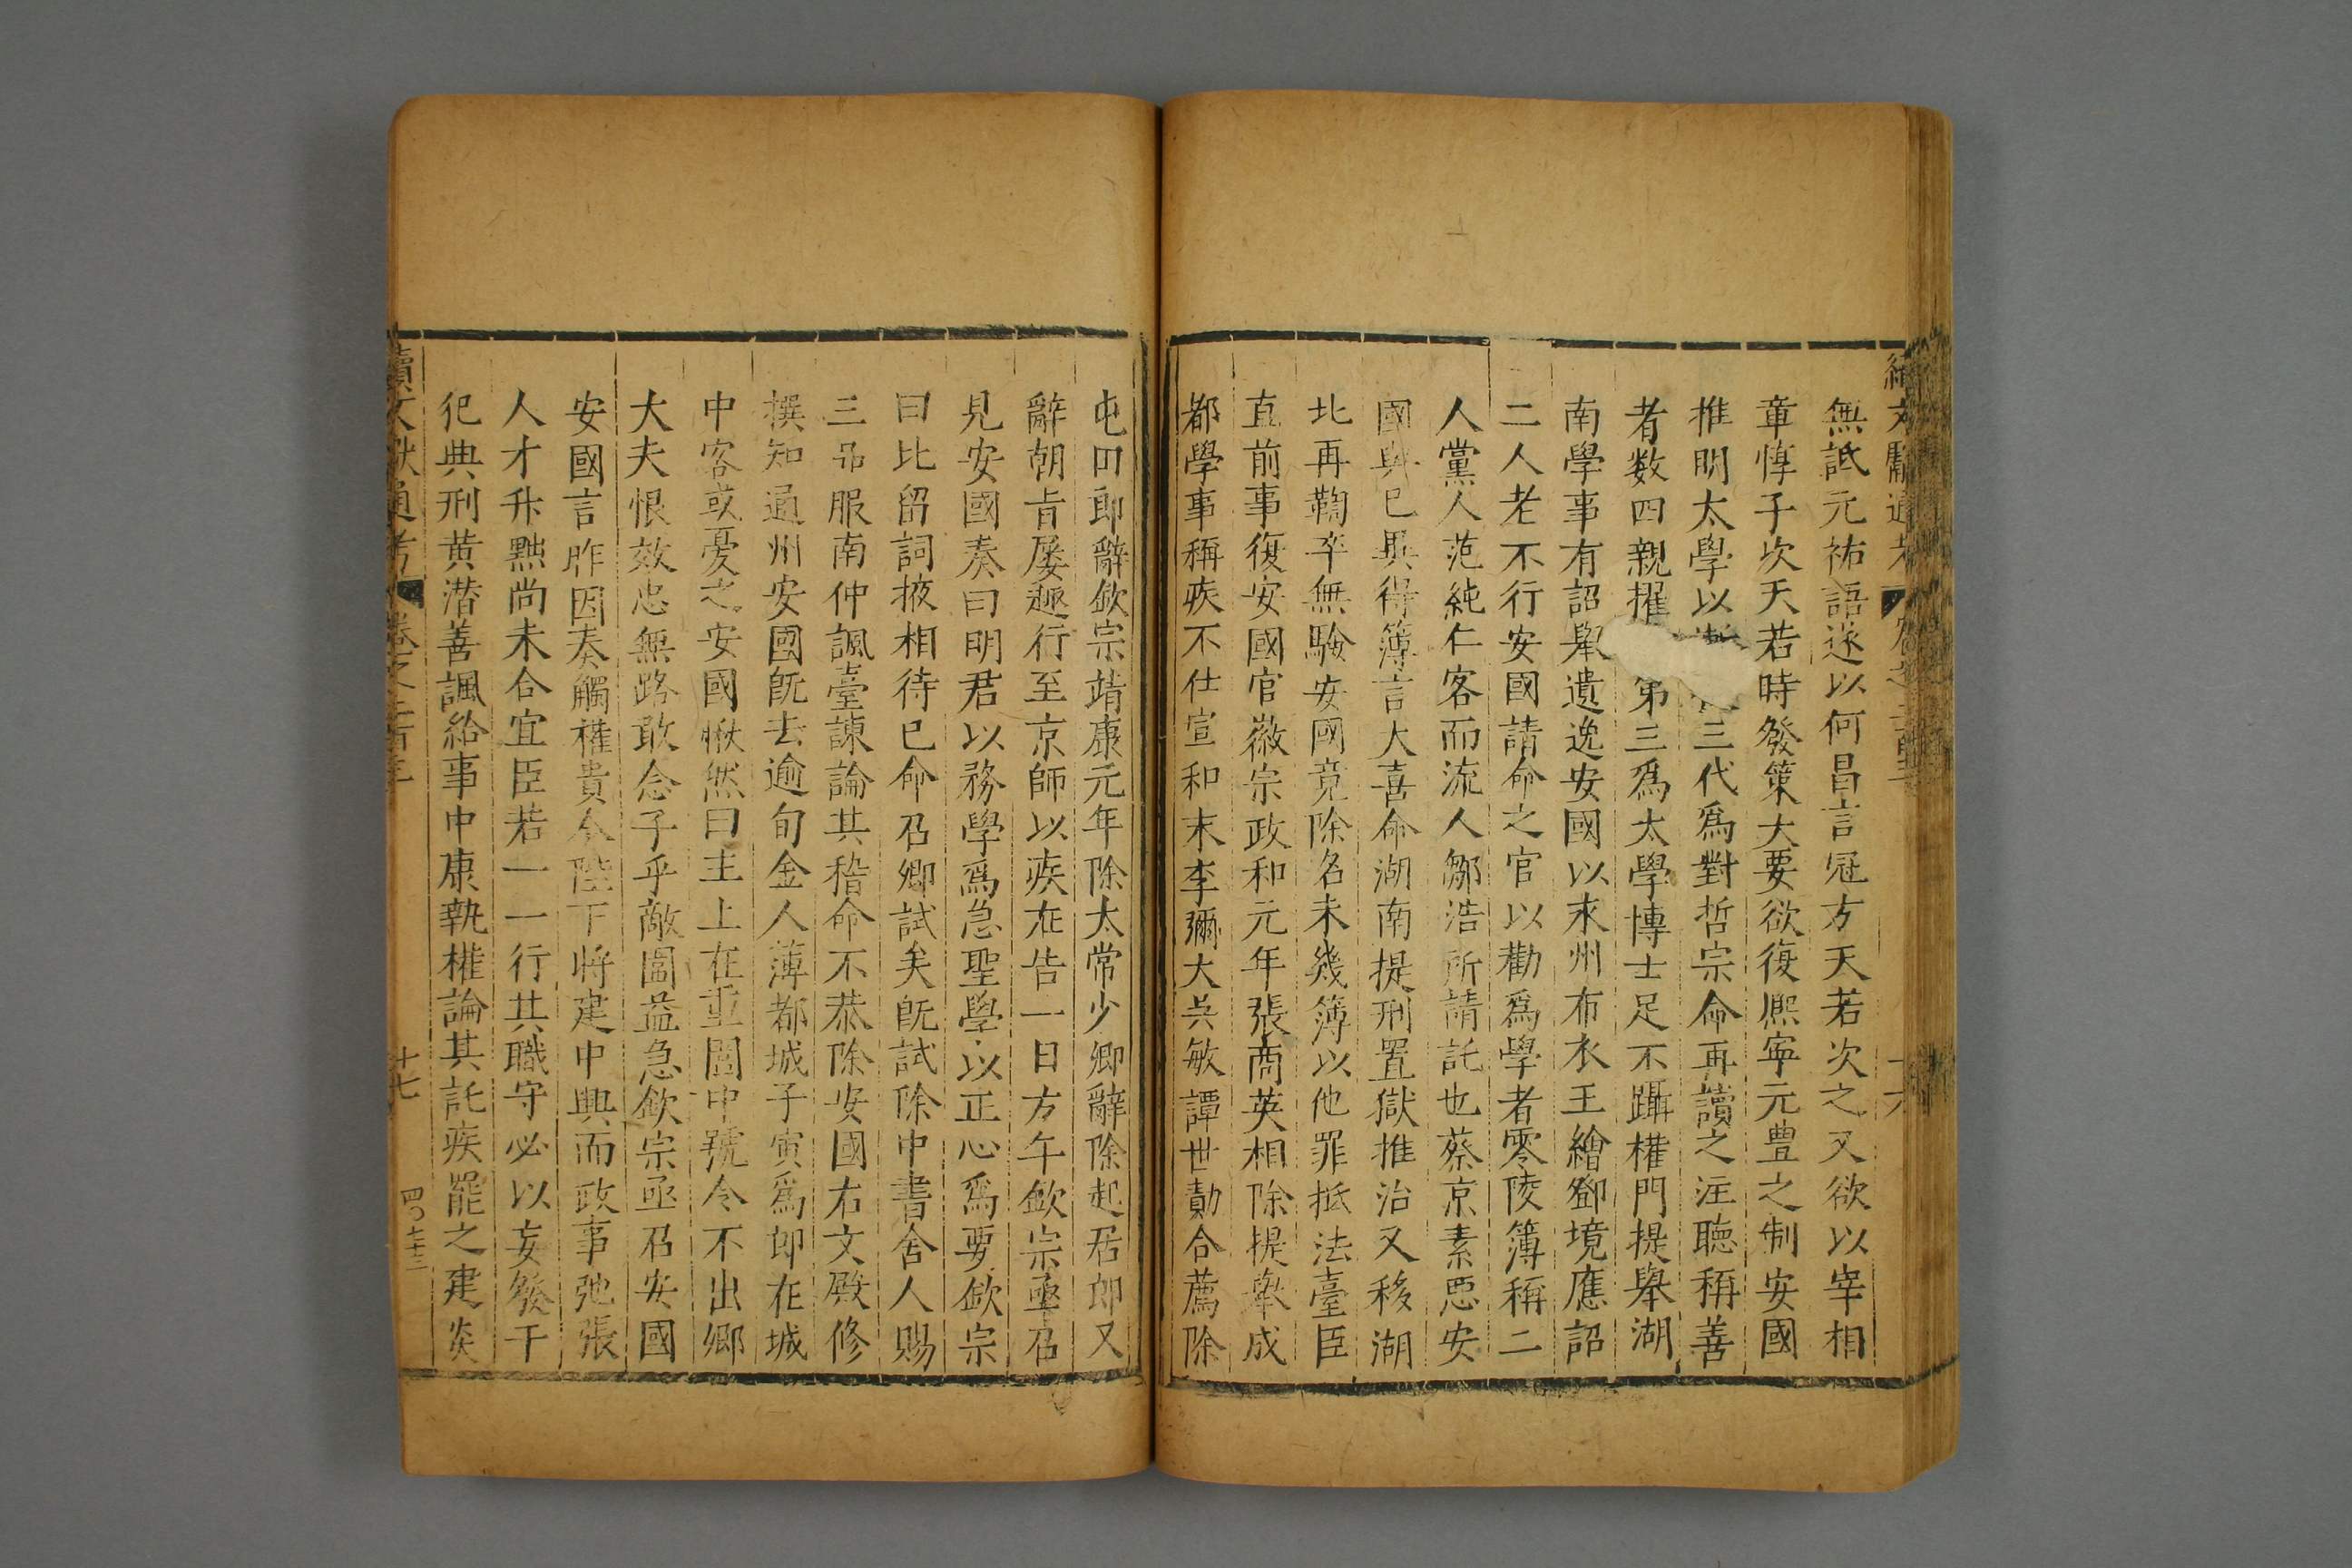 無詆元祐語遂以何昌言冠方天若次之又欲以宰相
章惇子次天若時發策大要欲復熈寕元豊之制安國
推明太學以漸三代爲對哲宗命再讀之注聽稱善
者数四親擢第三爲太學博士足不躡權門提舉湖
南學事有詔舉遺逸安國以永州布衣王繪鄧境應詔
二人老不行安國請命之官以勸爲學者零陵簿稱二
人黨人范純仁客而流人鄒浩所請託也蔡京素惡安
國與已異得簿言大喜命湖南提刑置獄推治又移湖
北再鞫卒無騐安國竟除名未幾簿以他罪抵法臺臣
直前事復安國官徽宗政和元年張商英相除提舉成
都學事稱疾不仕宣和末李彌大吳敏譚世勣合薦除
屯田郎辭欽宗靖康元年除太常少卿辭除起居郎又
辭朝旨屢趣行至京師以疾在告一日方午欽宗亟召
見安國奏曰明君以務學爲急聖學以正心爲要欽宗
曰比留詞掖相待已命召卿試矣旣試除中書舍人賜
三品服南仲諷臺諫論其稽命不恭除安國右文殿修
撰知通州安國旣去逾旬金人薄都城子寅爲郎在城
中客或憂之安國愀然曰主上在重圍中號令不出卿
大夫恨效忠無路敢念子乎敵圍益急欽宗亟召安國
安國言昨因奏觸權貴今陛下將建中興而政事弛張
人才升黜尚未合宜臣若一一行其職守必以妄發干
犯典刑黄潜善諷給事中康執權論其託疾罷之建炎
續文獻通考 卷之二百三 十七